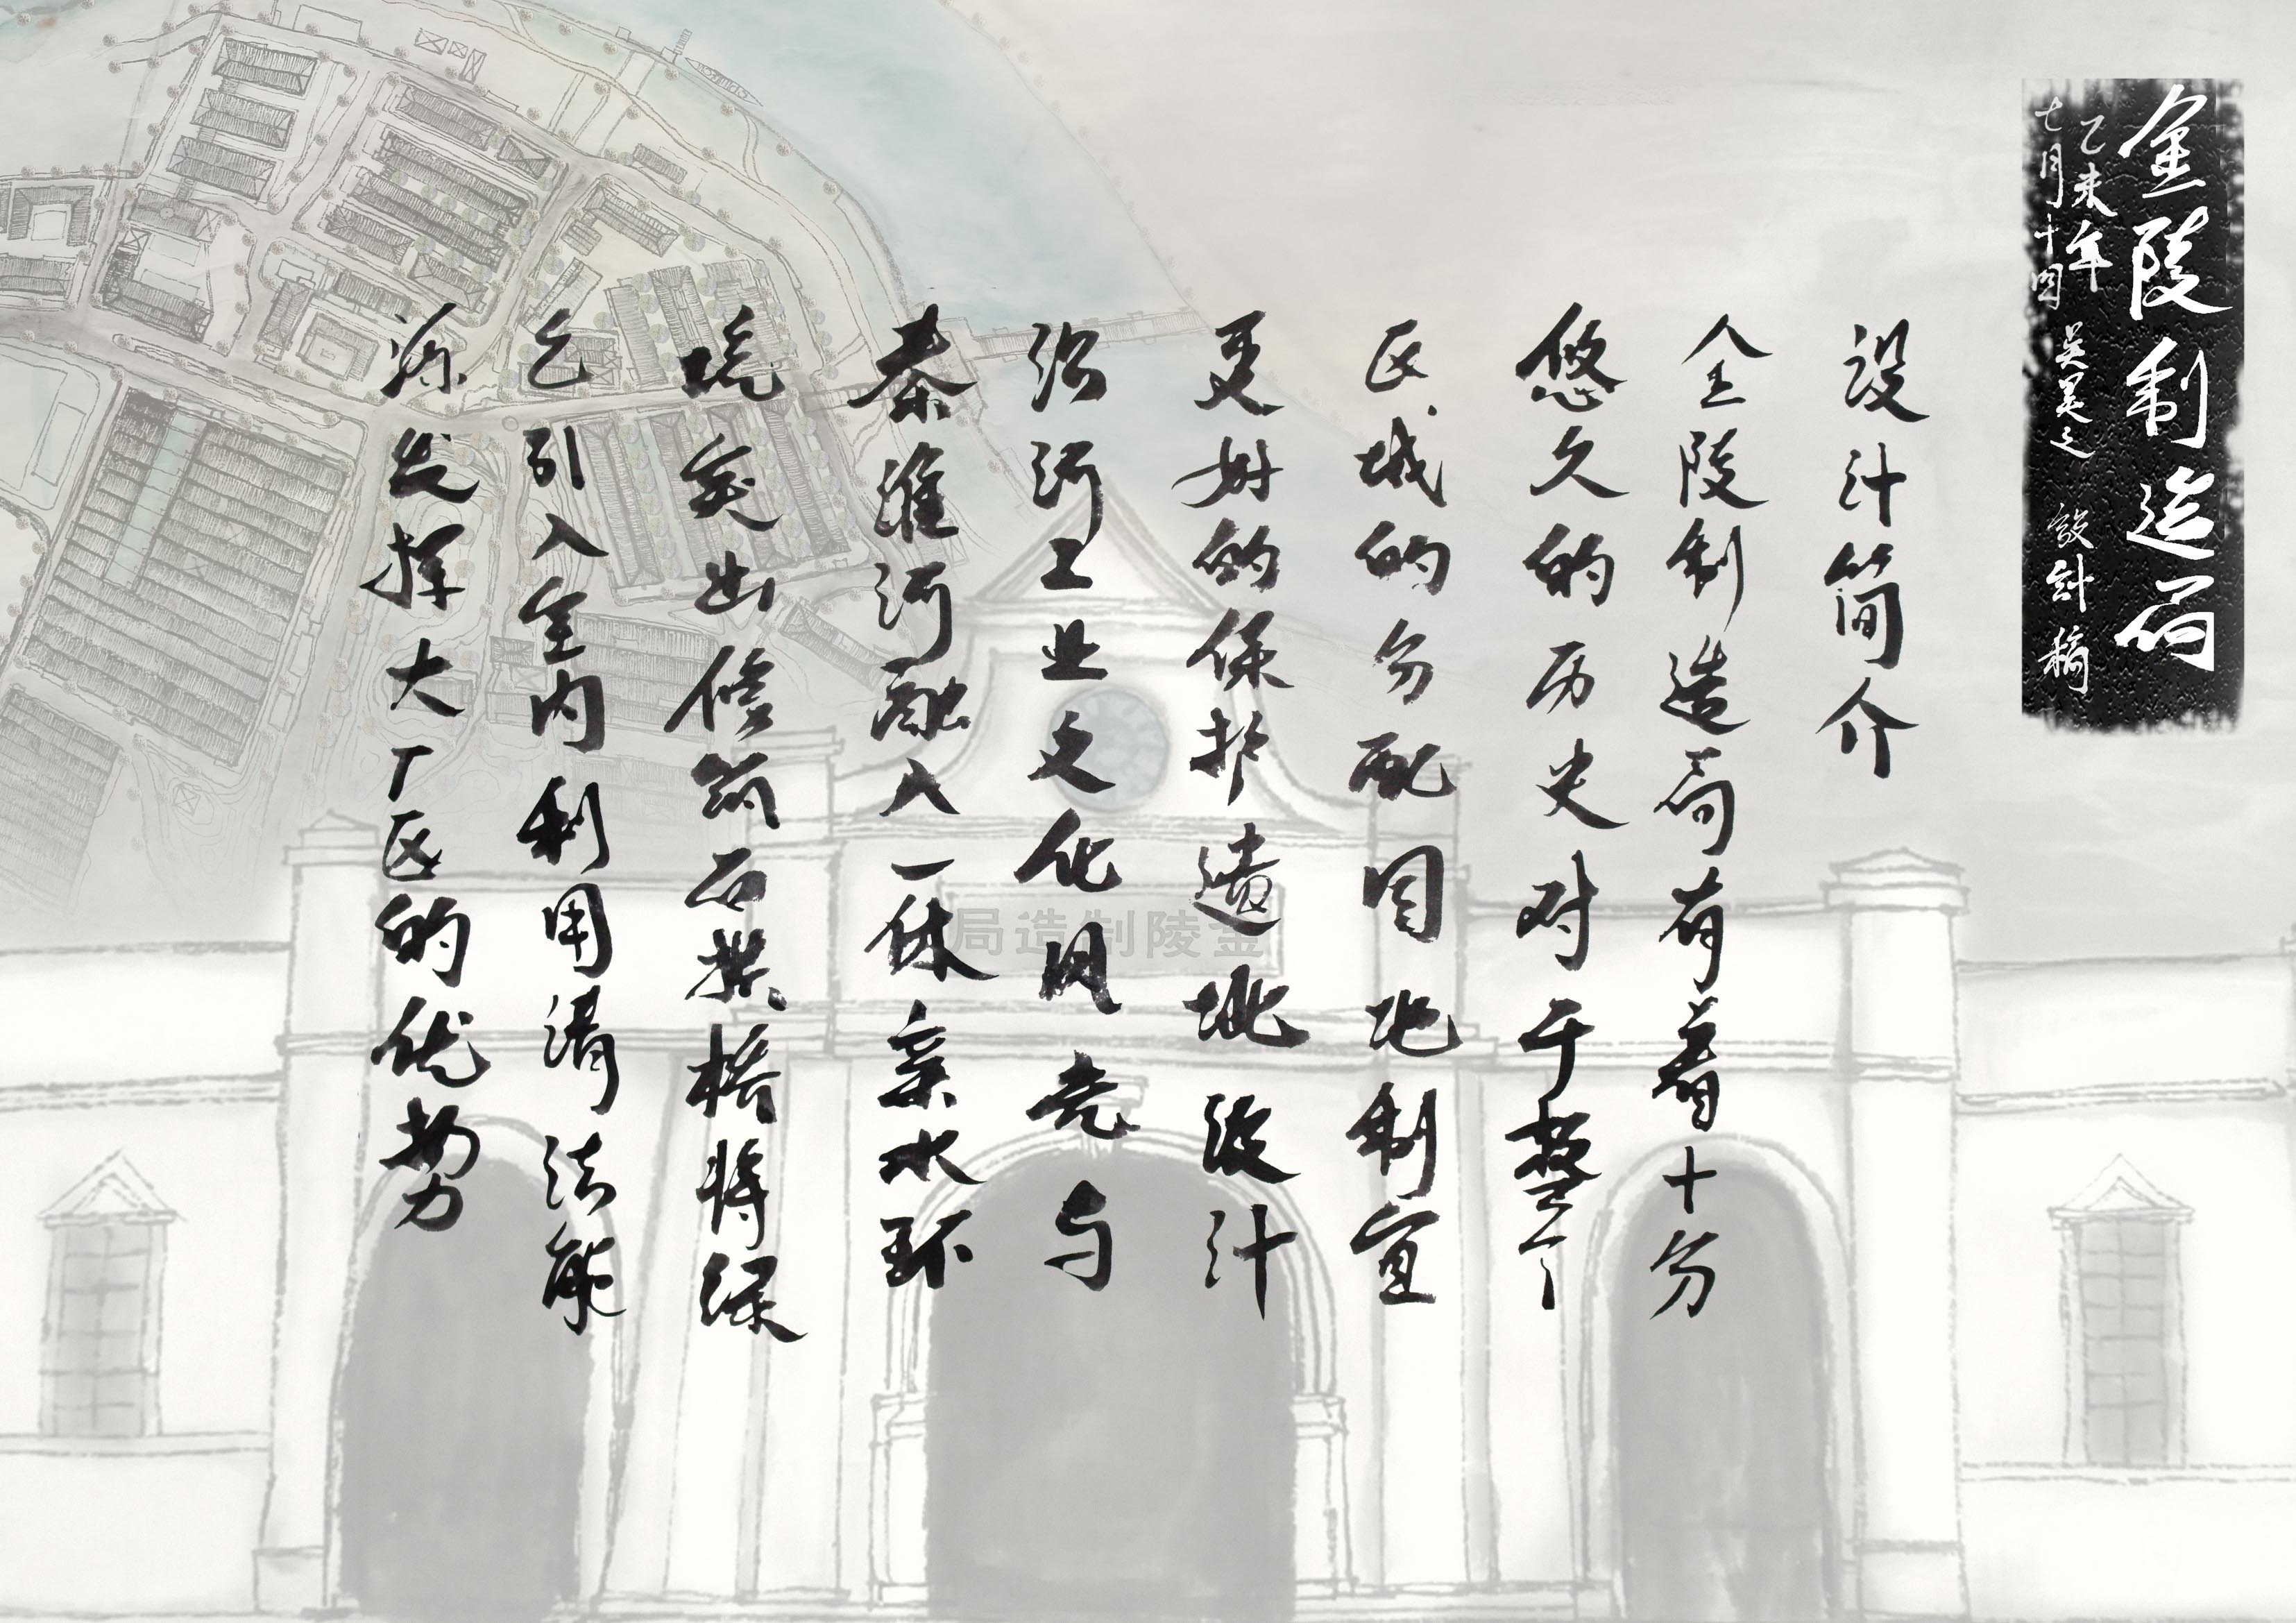 金陵制造局
乙未年
七月十四
吴昊之 设計稿
设计简介
金陵制造局有着十分
悠久的历史对于整个
区域的分配因地制宜
更好的保护遗址设计
沿河工业文化风光与
秦淮河融入一体亲水环
境突出修筑石拱桥将绿
色引入室内利用清洁能
源发挥大厂区的优势
金陵制造局